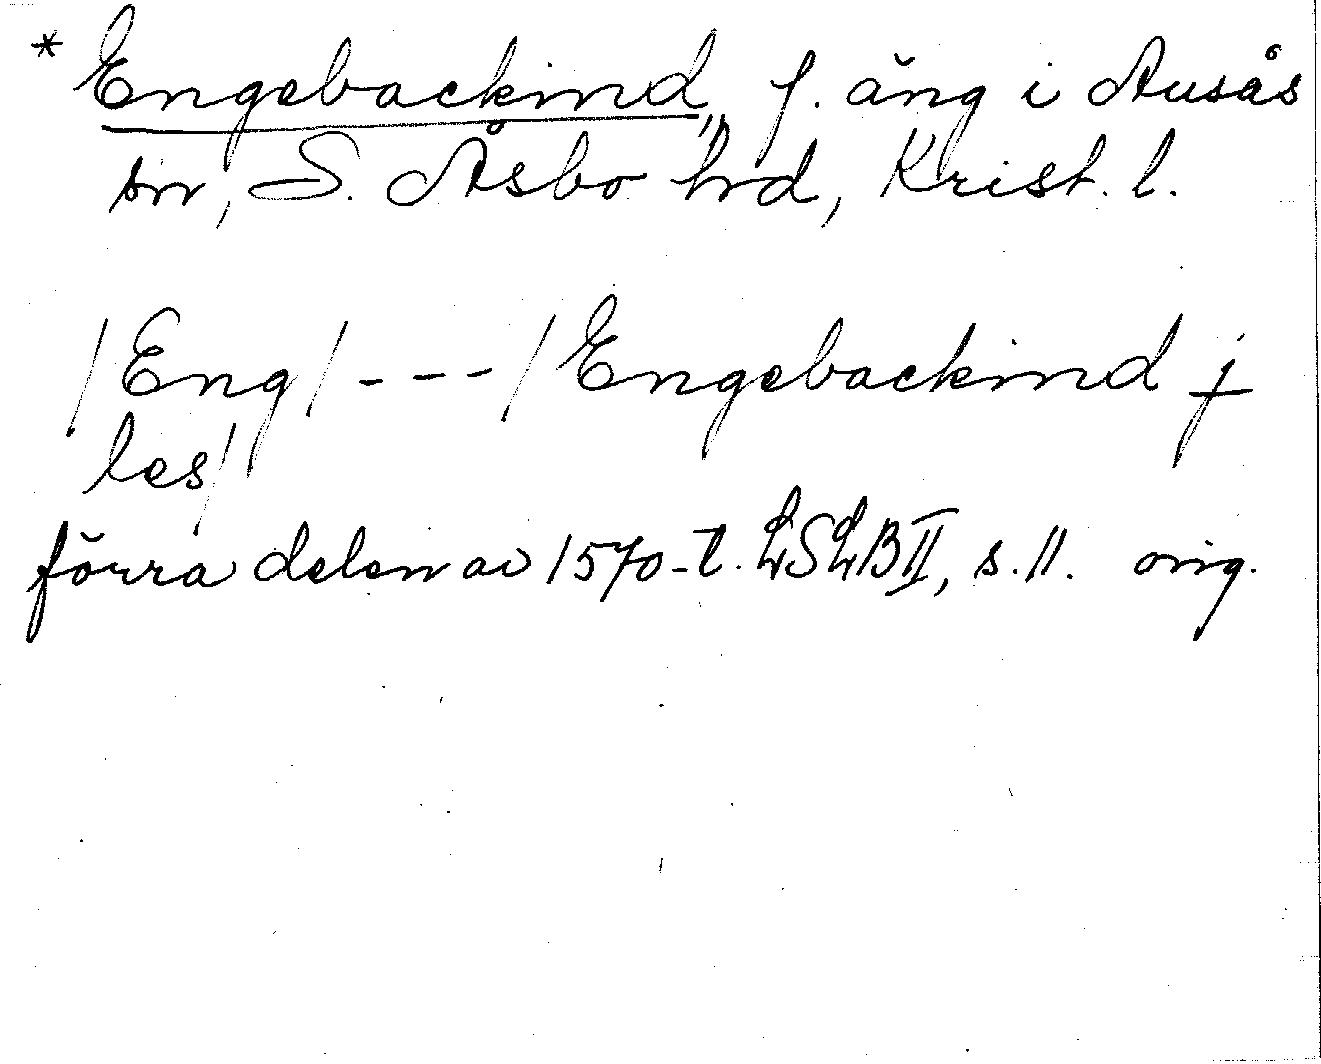 * Engebackind, f. äng i Ausås
sn, S. Åsbo hrd, Krist. l.
/Eng/ --- / Engebackind j
les/
förra delen av 1570-t. LSLB II, s. 11. orig.